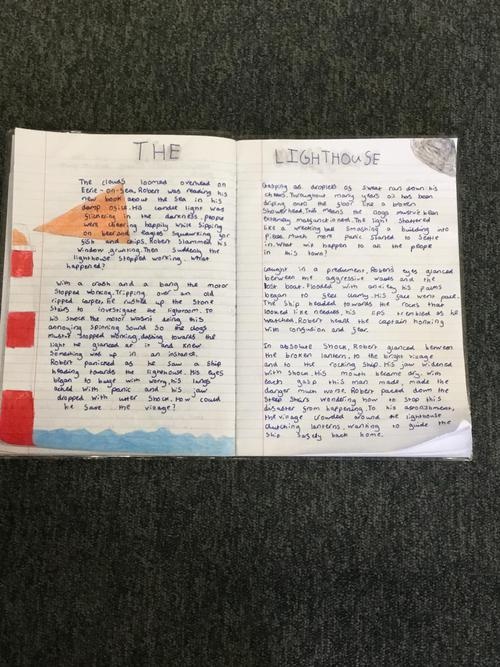 THE
The clouds loomed overhead on
Eerie-on-Sea, Robert was reading his
new book about the sea in his
damp office. His candle light was
glistening in the darkness, people
were cheering happily while sipping
on beer and seagulls squawking for
fish and chips. Robert slammed his
window, grunting. Then suddenly the
lighthouse stopped working. What
happened?
With a crash and a bang the motor
stopped working. Tripping over an old
ripped carpet, he rushed up the stone
stairs to investigate the lightroom. To
his shock the motor wasn't doing this
annoying spinning sound so the cogs
must of stopped working, dashing towards the
light he glanced at it and knew
Something was up in an instance.
Robert panicked as he saw a ship
heading towards the lighthouse. His eyes
began to bulge with worry, his lungs
ached with panic and his jaw
dropped with utter shock. How could
he save the village?
LIGHTHOUSE
Gasping as droplets of sweat ran down his
cheeks. Throughout many years oil has been
driping onto the floor like a broken
Showerhead. This means the cogs must've been
extremely malfunctioned. The light shattered
like a wrecking ball smashing a building into
pieces. Much more panic started to settle
in. What will happen to all the people
in this town?
Caught in a predicament, Roberts eyes glanced
between the aggressive waves and the
lost boat. Flooded with anxiety his palms
began to feel clamy. His face went pale.
The ship headed towards the rocks that
looked like needles his lips trembled as he
watched. Robert heard the captain honking
with confusion and fear.
In absolute shock, Robert glanced between
the broken lantern, to the bright village
and to the rocking ship. His jaw widened
with shock. His mouth became dry. With
each gasp this man made, made the
danger much worse. Robert paced down the
steep stairs wondering how to stop this
disaster from happening. To his astonishment,
the village crowded around the lighthouse
clutching lanterns, wanting to guide the
ship safely back home.